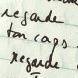 regarde
ton corps.
regarde